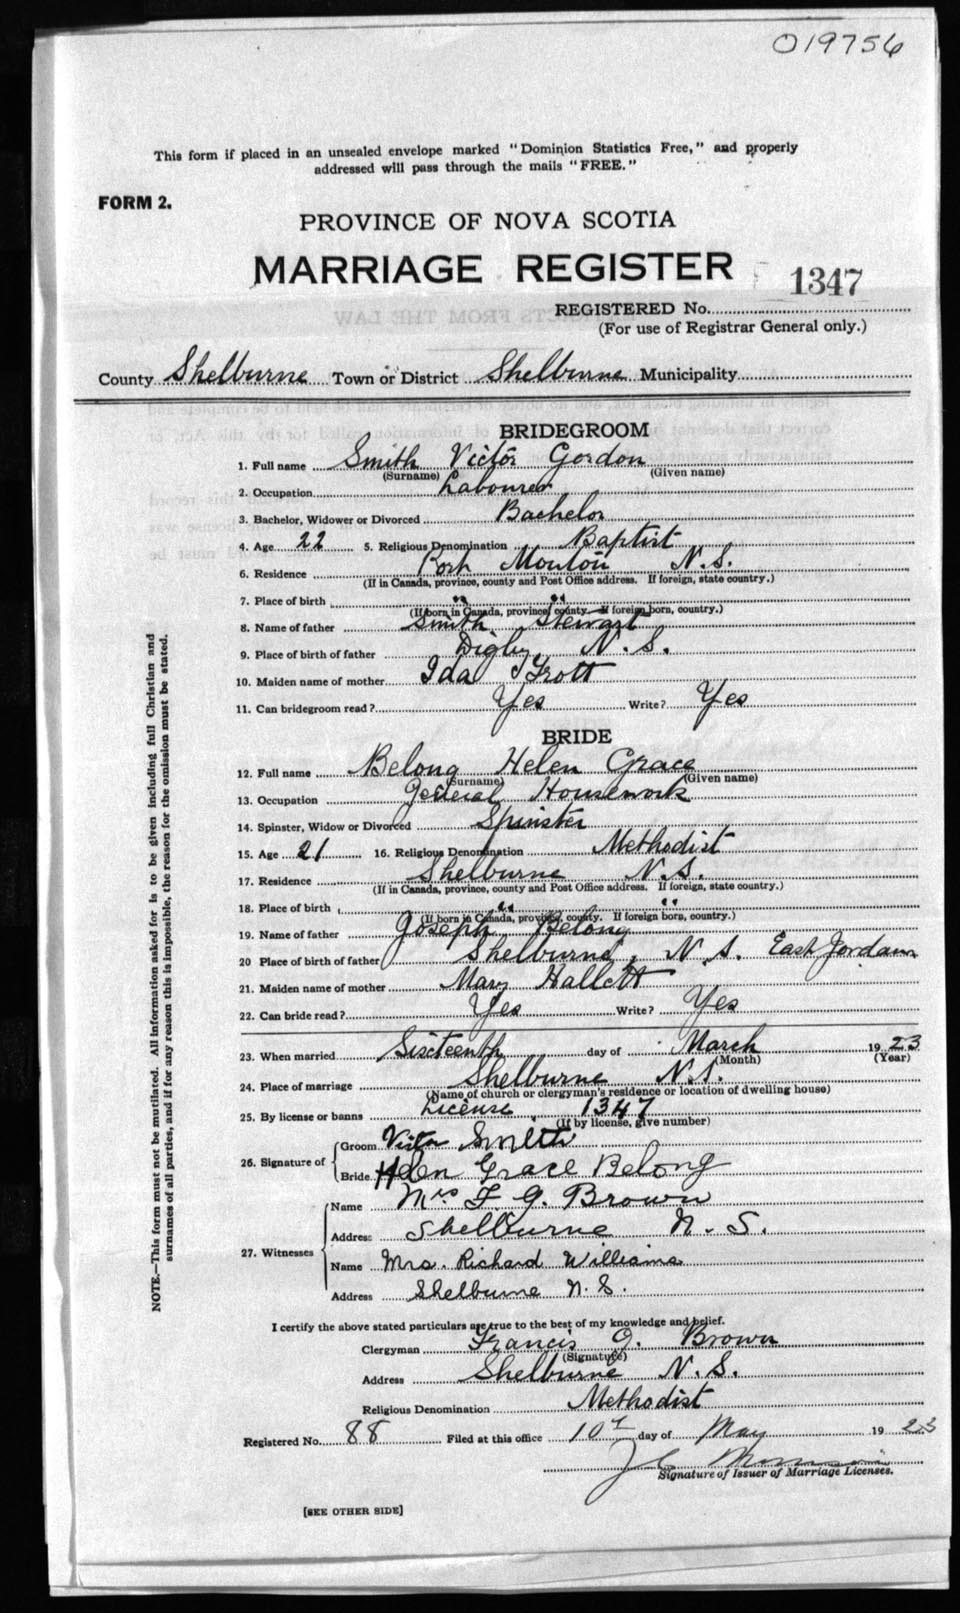 019756
This form if placed in an unsealed envelope marked "Dominion Statistics Free," and properly
addressed will pass through the mails "FREE."
FORM 2.
PROVINCE OF NOVA SCOTIA
MARRIAGE REGISTER
1347
REGISTERED No.
(For use of Registrar General only.)
County Shelburne Town or District Shelburne Municipality
BRIDEGROOM
1. Full name Smith Victor Gordon
(Surname) (Given name)
2. Occupation Labourer
3. Bachelor, Widower or Divorced Bachelor
4. Age 22 5. Religious Denomination Baptist
6. Residence Port Mouton N.S.
(If in Canada, province, county and Post Office address. If foreign, state country.)
7. Place of birth " "
(If born in Canada, province, county. If foreign born, country.)
8. Name of father Smith Stewart
9. Place of birth of father Digby N.S.
10. Maiden name of mother Ida Trott
11. Can bridegroom read? Yes Write? Yes
BRIDE
12. Full name Belong Helen Grace
(Surname) (Given name)
13. Occupation General Housework
14. Spinster, Widow or Divorced Spinster
15. Age 21 16. Religious Denomination Methodist
17. Residence Shelburne N.S.
(If in Canada, province, county and Post Office address. If foreign, state country.)
18. Place of birth " "
(If born in Canada, province, county. If foreign born, country.)
19. Name of father Joseph Belong
20 Place of birth of father Shelburne, N.S. East Jordan
21. Maiden name of mother Mary Hallett
22. Can bride read? Yes Write? Yes
23. When married Sixteenth day of March 1923
(Month) (Year)
24. Place of marriage Shelburne N.S.
(Name of church or clergyman's residence or location of dwelling house)
25. By license or banns License 1347
(If by license, give number)
26. Signature of Groom Victor Smith
Bride Helen Grace Belong
27. Witnesses
Name Mrs F. G. Brown
Address Shelburne N.S.
Name Mrs. Richard Williams
Address Shelburne N.S.
I certify the above stated particulars are true to the best of my knowledge and belief.
Clergyman Francis G. Brown
(Signature)
Address Shelburne N.S.
Religious Denomination Methodist
Registered No. 88 Filed at this office 10 day of May 1923
J C
Signature of Issuer of Marriage Licenses.
[SEE OTHER SIDE]
NOTE.—This form must not be mutilated. All information asked for is to be given including full Christian and
surnames of all parties, and if for any reason this is impossible, the reason for the omission must be stated.